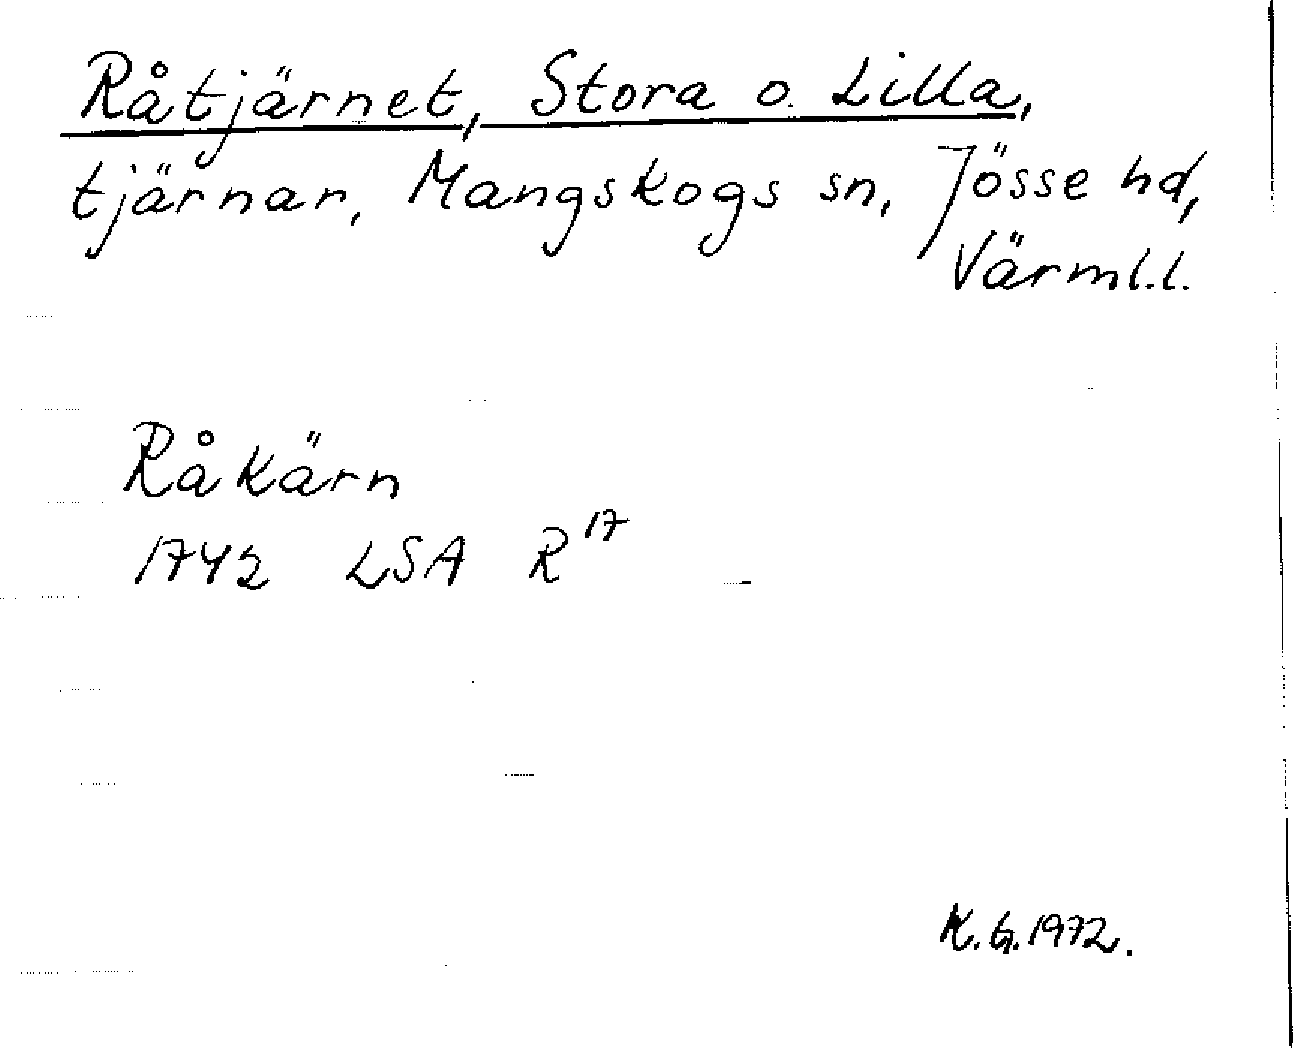 Råtjärnet, Stora o. Lilla,
tjärnar, Mangskogs sn, Jösse hd,
Värml.l.
Råkärn
1742 LSA R 17
K.G. 1972.